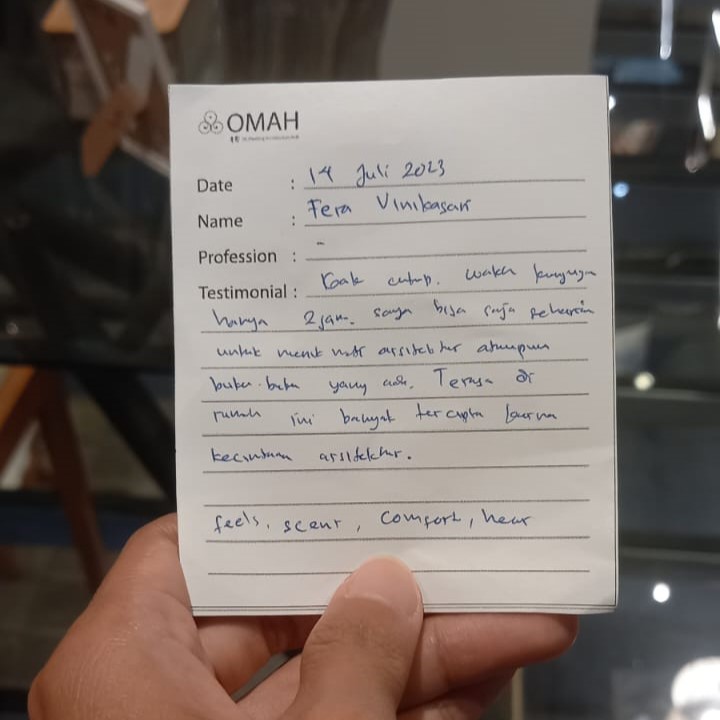 OMAH
Date : 14 Juli 2023
Name : Fera Vinikasari
Profession : -
Testimonial : Gak cukup. waktu kunjungan
hanya 2 jam. saya bisa saja seharian
untuk menikmati arsitektur ataupun
buku-buku yang ada. Terasa di
rumah ini banyak tercipta karna
kecintaan arsitektur.
feels, scent, comfort, hear